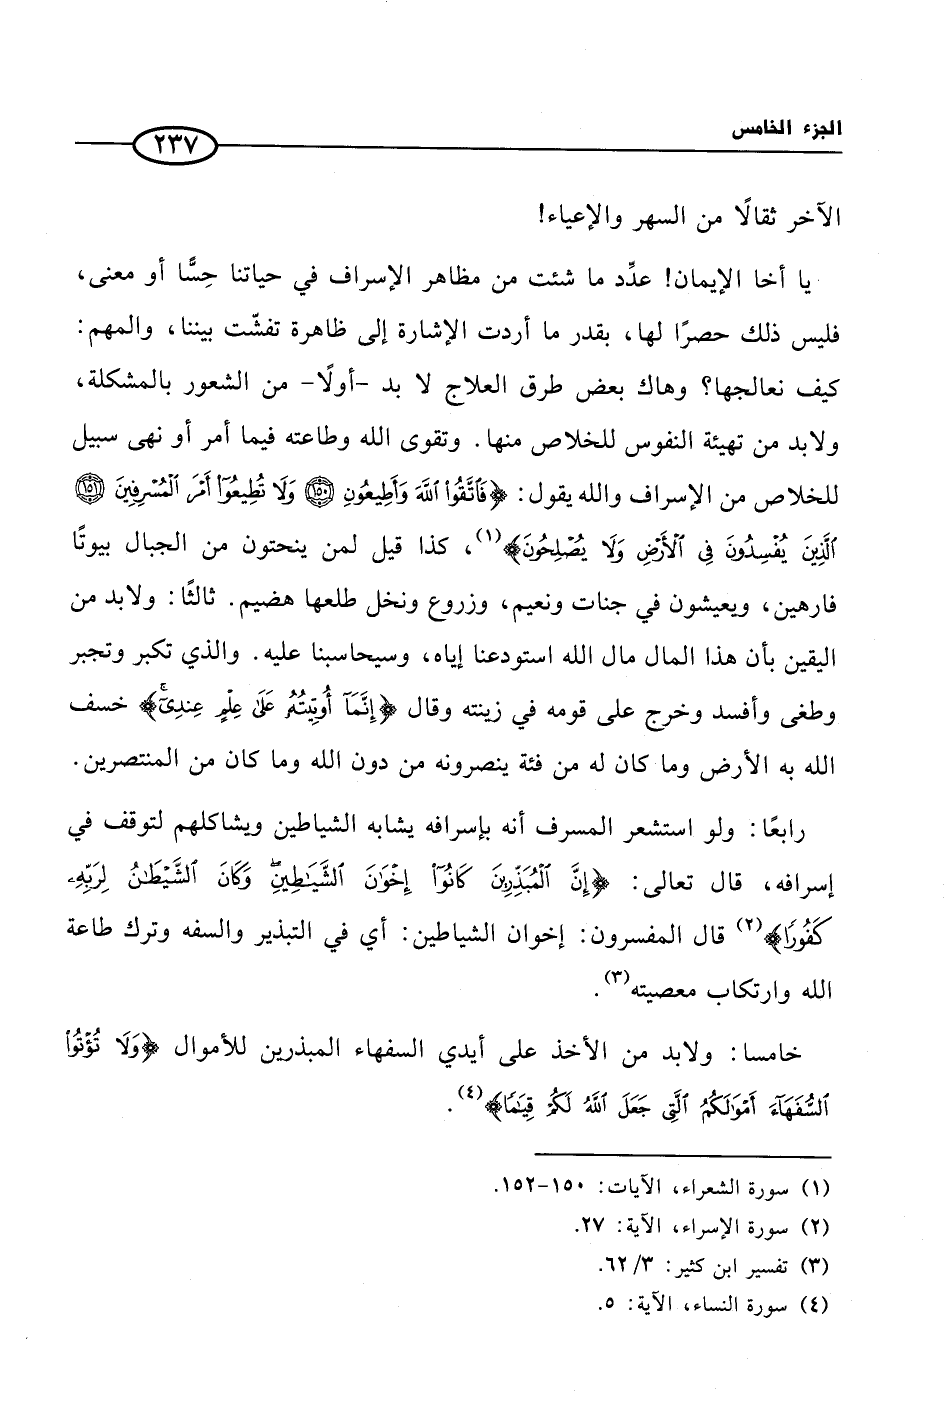 الجزء الخامس
٢٣٧
الآخر ثقالًا من السهر والإعياء!
يا أخا الإيمان! عدِّد ما شئت من مظاهر الإسراف في حياتنا حِسًّا أو معنى،
فليس ذلك حصرًا لها، بقدر ما أردت الإشارة إلى ظاهرة تفشّت بيننا، والمهم:
كيف نعالجها؟ وهاك بعض طرق العلاج لا بد -أولًا- من الشعور بالمشكلة،
ولابد من تهيئة النفوس للخلاص منها. وتقوى الله وطاعته فيما أمر أو نهى سبيل
للخلاص من الإسراف والله يقول: ﴿فَٱتَّقُوا۟ ٱللَّهَ وَأَطِيعُونِ ١٥٠ وَلَا تُطِيعُوٓا۟ أَمْرَ ٱلْمُسْرِفِينَ ١٥١
ٱلَّذِينَ يُفْسِدُونَ فِى ٱلْأَرْضِ وَلَا يُصْلِحُونَ﴾(١)، كذا قيل لمن ينحتون من الجبال بيوتًا
فارهين، ويعيشون في جنات ونعيم، وزروع ونخل طلعها هضيم. ثالثًا: ولابد من
اليقين بأن هذا المال مال الله استودعنا إياه، وسيحاسبنا عليه. والذي تكبر وتجبر
وطغى وأفسد وخرج على قومه في زينته وقال ﴿إِنَّمَآ أُوتِيتُهُۥ عَلَىٰ عِلْمٍ عِندِىٓ ۚ﴾ خسف
الله به الأرض وما كان له من فئة ينصرونه من دون الله وما كان من المنتصرين.
رابعًا: ولو استشعر المسرف أنه بإسرافه يشابه الشياطين ويشاكلهم لتوقف في
إسرافه، قال تعالى: ﴿إِنَّ ٱلْمُبَذِّرِينَ كَانُوٓا۟ إِخْوَٰنَ ٱلشَّيَٰطِينِ ۖ وَكَانَ ٱلشَّيْطَٰنُ لِرَبِّهِۦ
كَفُورًا﴾(٢) قال المفسرون: إخوان الشياطين: أي في التبذير والسفه وترك طاعة
الله وارتكاب معصيته(٣).
خامسا: ولابد من الأخذ على أيدي السفهاء المبذرين للأموال ﴿وَلَا تُؤْتُوا۟
ٱلسُّفَهَآءَ أَمْوَٰلَكُمُ ٱلَّتِى جَعَلَ ٱللَّهُ لَكُمْ قِيَٰمًا﴾(٤).
(١) سورة الشعراء، الآيات: ١٥٠-١٥٢.
(٢) سورة الإسراء، الآية: ٢٧.
(٣) تفسير ابن كثير: ٣/ ٦٢.
(٤) سورة النساء، الآية: ٥.